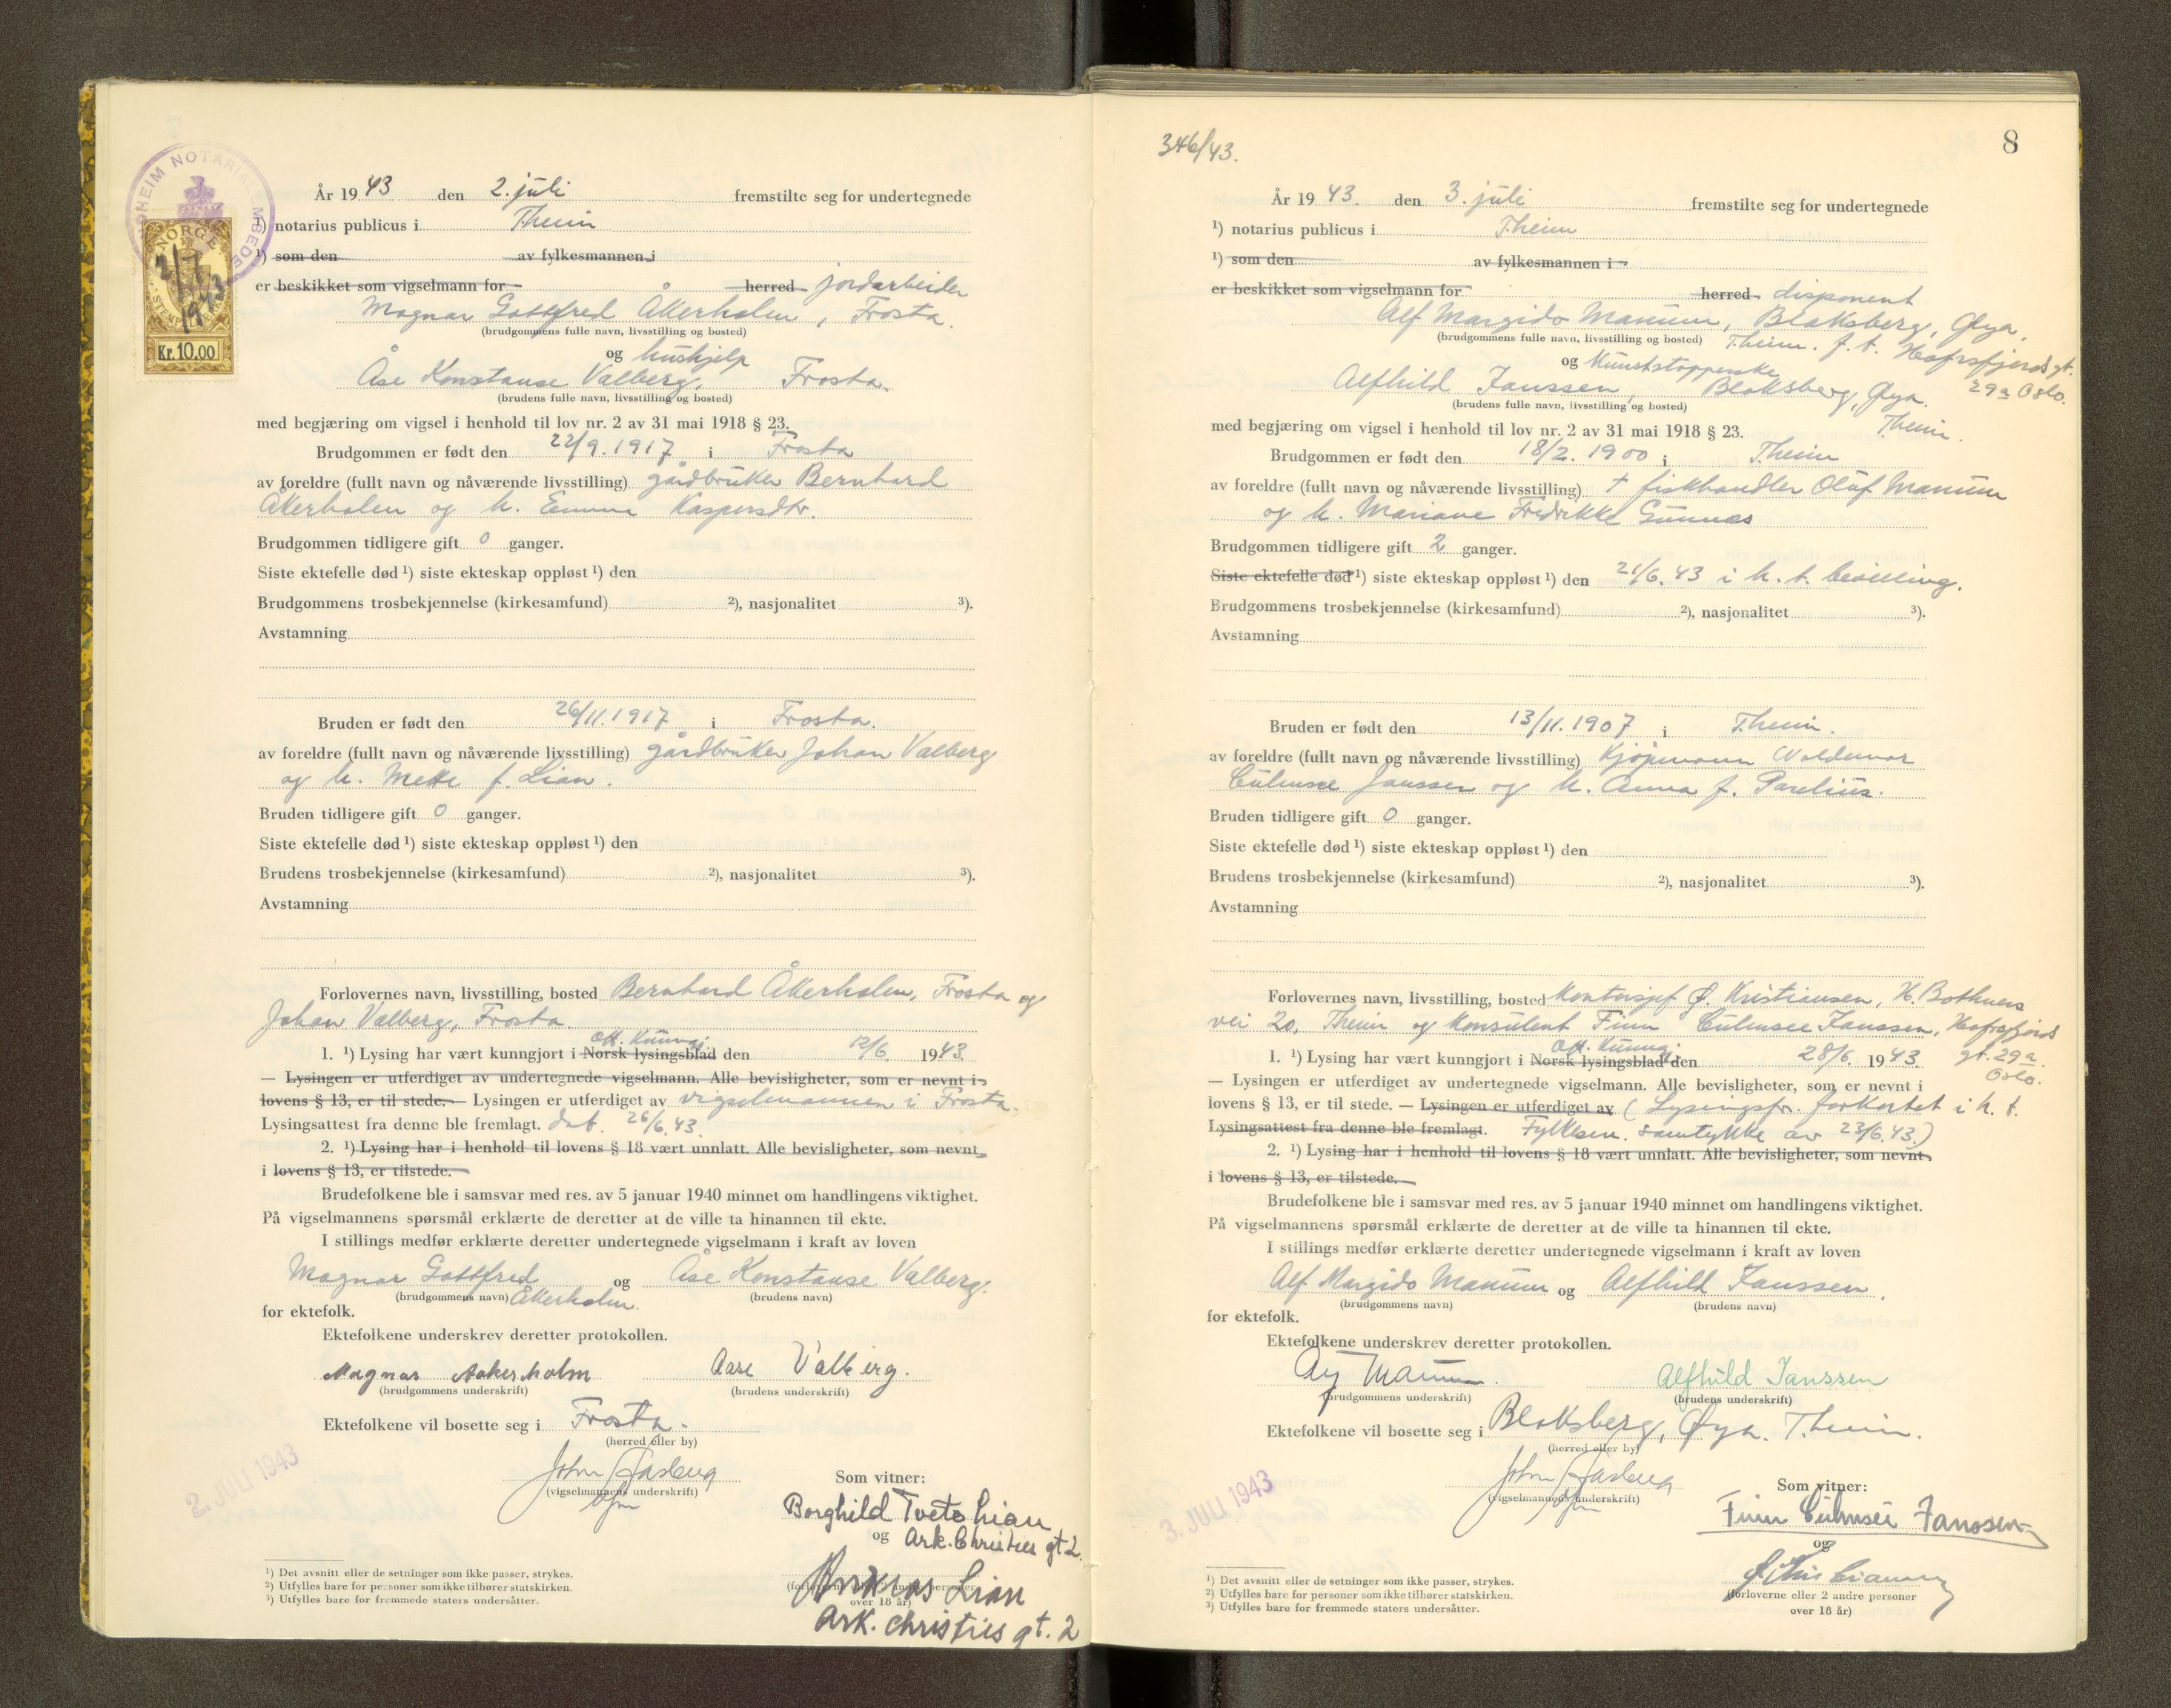 År 19 43 den 2. juli fremstilte seg for undertegnede
¹) notarius publicus i Theim
¹) som den av fylkesmannen i
er beskikket som vigselmann for herred jordarbeider
Magnar Gottfred Åkerholm, Frosta.
(brudgommens fulle navn, livsstilling og bosted)
og hushjelp
Åse Konstanse Valberg, Frosta.
(brudens fulle navn, livsstilling og bosted)
med begjæring om vigsel i henhold til lov nr. 2 av 31 mai 1918 § 23.
Brudgommen er født den 22/9. 1917 i Frosta
av foreldre (fullt navn og nåværende livsstilling) gårdbruker Bernhard
Åkerholm og h. Emma Kaspersdtr.
Brudgommen tidligere gift 0 ganger.
Siste ektefelle død ¹) siste ekteskap oppløst ¹) den
Brudgommens trosbekjennelse (kirkesamfund) ²), nasjonalitet ³).
Avstamning
Bruden er født den 26/11. 1917 i Frosta.
av foreldre (fullt navn og nåværende livsstilling) gårdbruker Johan Valberg
og h. Mette f. Lian.
Bruden tidligere gift 0 ganger.
Siste ektefelle død ¹) siste ekteskap oppløst ¹) den
Brudens trosbekjennelse (kirkesamfund) ²), nasjonalitet ³).
Avstamning
Forlovernes navn, livsstilling, bosted Bernhard Åkerholm, Frosta og
Johan Valberg, Frosta.
Off. Kunngj.
1. ¹) Lysing har vært kunngjort i Norsk lysingsblad den 12/6. 1943.
— Lysingen er utferdiget av undertegnede vigselmann. Alle bevisligheter, som er nevnt i
lovens § 13, er til stede. — Lysingen er utferdiget av vigselmannen i Frosta.
Lysingsattest fra denne ble fremlagt. dat. 26/6.43.
2. ¹) Lysing har i henhold til lovens § 18 vært unnlatt. Alle bevisligheter, som nevnt
i lovens § 13, er tilstede.
Brudefolkene ble i samsvar med res. av 5 januar 1940 minnet om handlingens viktighet.
På vigselmannens spørsmål erklærte de deretter at de ville ta hinannen til ekte.
I stillings medfør erklærte deretter undertegnede vigselmann i kraft av loven
Magnar Gottfred og Åse Konstanse Valberg.
(brudgommens navn) Åkerholm. (brudens navn)
for ektefolk.
Ektefolkene underskrev deretter protokollen.
Magnar Aakerholm Aase Valberg.
(brudgommens underskrift) (brudens underskrift)
Ektefolkene vil bosette seg i Frosta.
(herred eller by)
2. JULI 1943
(vigselmannens underskrift)
Som vitner:
Borghild Tveto Lian
og Ark. Christies gt 2.
Lian
over 18 år)
Ark. Christies gt. 2
¹) Det avsnitt eller de setninger som ikke passer, strykes.
²) Utfylles bare for personer som ikke tilhører statskirken.
³) Utfylles bare for fremmede staters undersåtter.
NORGE
2/7 1943
Kr. 10.00
346/43.
8
År 19 43. den 3. juli fremstilte seg for undertegnede
¹) notarius publicus i Theim
¹) som den av fylkesmannen i
er beskikket som vigselmann for herred disponent
Alf Margido Manum, Bloksberg, Øya,
(brudgommens fulle navn, livsstilling og bosted) Theim. f.t. Hafrsfjords gt.
29a Oslo.
og kunststopperske
Alfhild Janssen, Bloksberg, Øya.
Theim.
(brudens fulle navn, livsstilling og bosted)
med begjæring om vigsel i henhold til lov nr. 2 av 31 mai 1918 § 23.
Brudgommen er født den 18/2. 1900 i Theim
av foreldre (fullt navn og nåværende livsstilling) † fiskhandler Oluf Manum
og h. Mariane Fredrikke Gunnæs
Brudgommen tidligere gift 2 ganger.
Siste ektefelle død ¹) siste ekteskap oppløst ¹) den 21/6. 43 i h. t. bevilling.
Brudgommens trosbekjennelse (kirkesamfund) ²), nasjonalitet ³).
Avstamning
Bruden er født den 13/11. 1907 i Theim.
av foreldre (fullt navn og nåværende livsstilling) Kjøpmann Woldemar
Culmsee Janssen og h. Anna f. Parelius.
Bruden tidligere gift 0 ganger.
Siste ektefelle død ¹) siste ekteskap oppløst ¹) den
Brudens trosbekjennelse (kirkesamfund) ²), nasjonalitet ³).
Avstamning
Forlovernes navn, livsstilling, bosted Kontorsjef Ø. Kristiansen, H. Bothners
vei 20, Theim og konsulent Finn Culmsee Janssen, Hafrsfjords
gt. 29a
Oslo.
Off. Kunngj.
1. ¹) Lysing har vært kunngjort i Norsk lysingsblad den 28/6. 1943.
— Lysingen er utferdiget av undertegnede vigselmann. Alle bevisligheter, som er nevnt i
lovens § 13, er til stede. — Lysingen er utferdiget av (Lysingsfr. forkortet i h. t.
Lysingsattest fra denne ble fremlagt. Fylkesm. samtykke av 23/6.43.)
2. ¹) Lysing har i henhold til lovens § 18 vært unnlatt. Alle bevisligheter, som nevnt
i lovens § 13, er tilstede.
Brudefolkene ble i samsvar med res. av 5 januar 1940 minnet om handlingens viktighet.
På vigselmannens spørsmål erklærte de deretter at de ville ta hinannen til ekte.
I stillings medfør erklærte deretter undertegnede vigselmann i kraft av loven
Alf Margido Manum og Alfhild Janssen.
(brudgommens navn) (brudens navn)
for ektefolk.
Ektefolkene underskrev deretter protokollen.
Alf Manum. Alfhild Janssen
(brudgommens underskrift) (brudens underskrift)
Ektefolkene vil bosette seg i Bloksberg, Øya. Theim.
(herred eller by)
3. JULI 1943
(vigselmannens underskrift)
Som vitner:
Finn Culmsee Janssen
og
(forloverne eller 2 andre personer
over 18 år)
¹) Det avsnitt eller de setninger som ikke passer, strykes.
²) Utfylles bare for personer som ikke tilhører statskirken.
³) Utfylles bare for fremmede staters undersåtter.